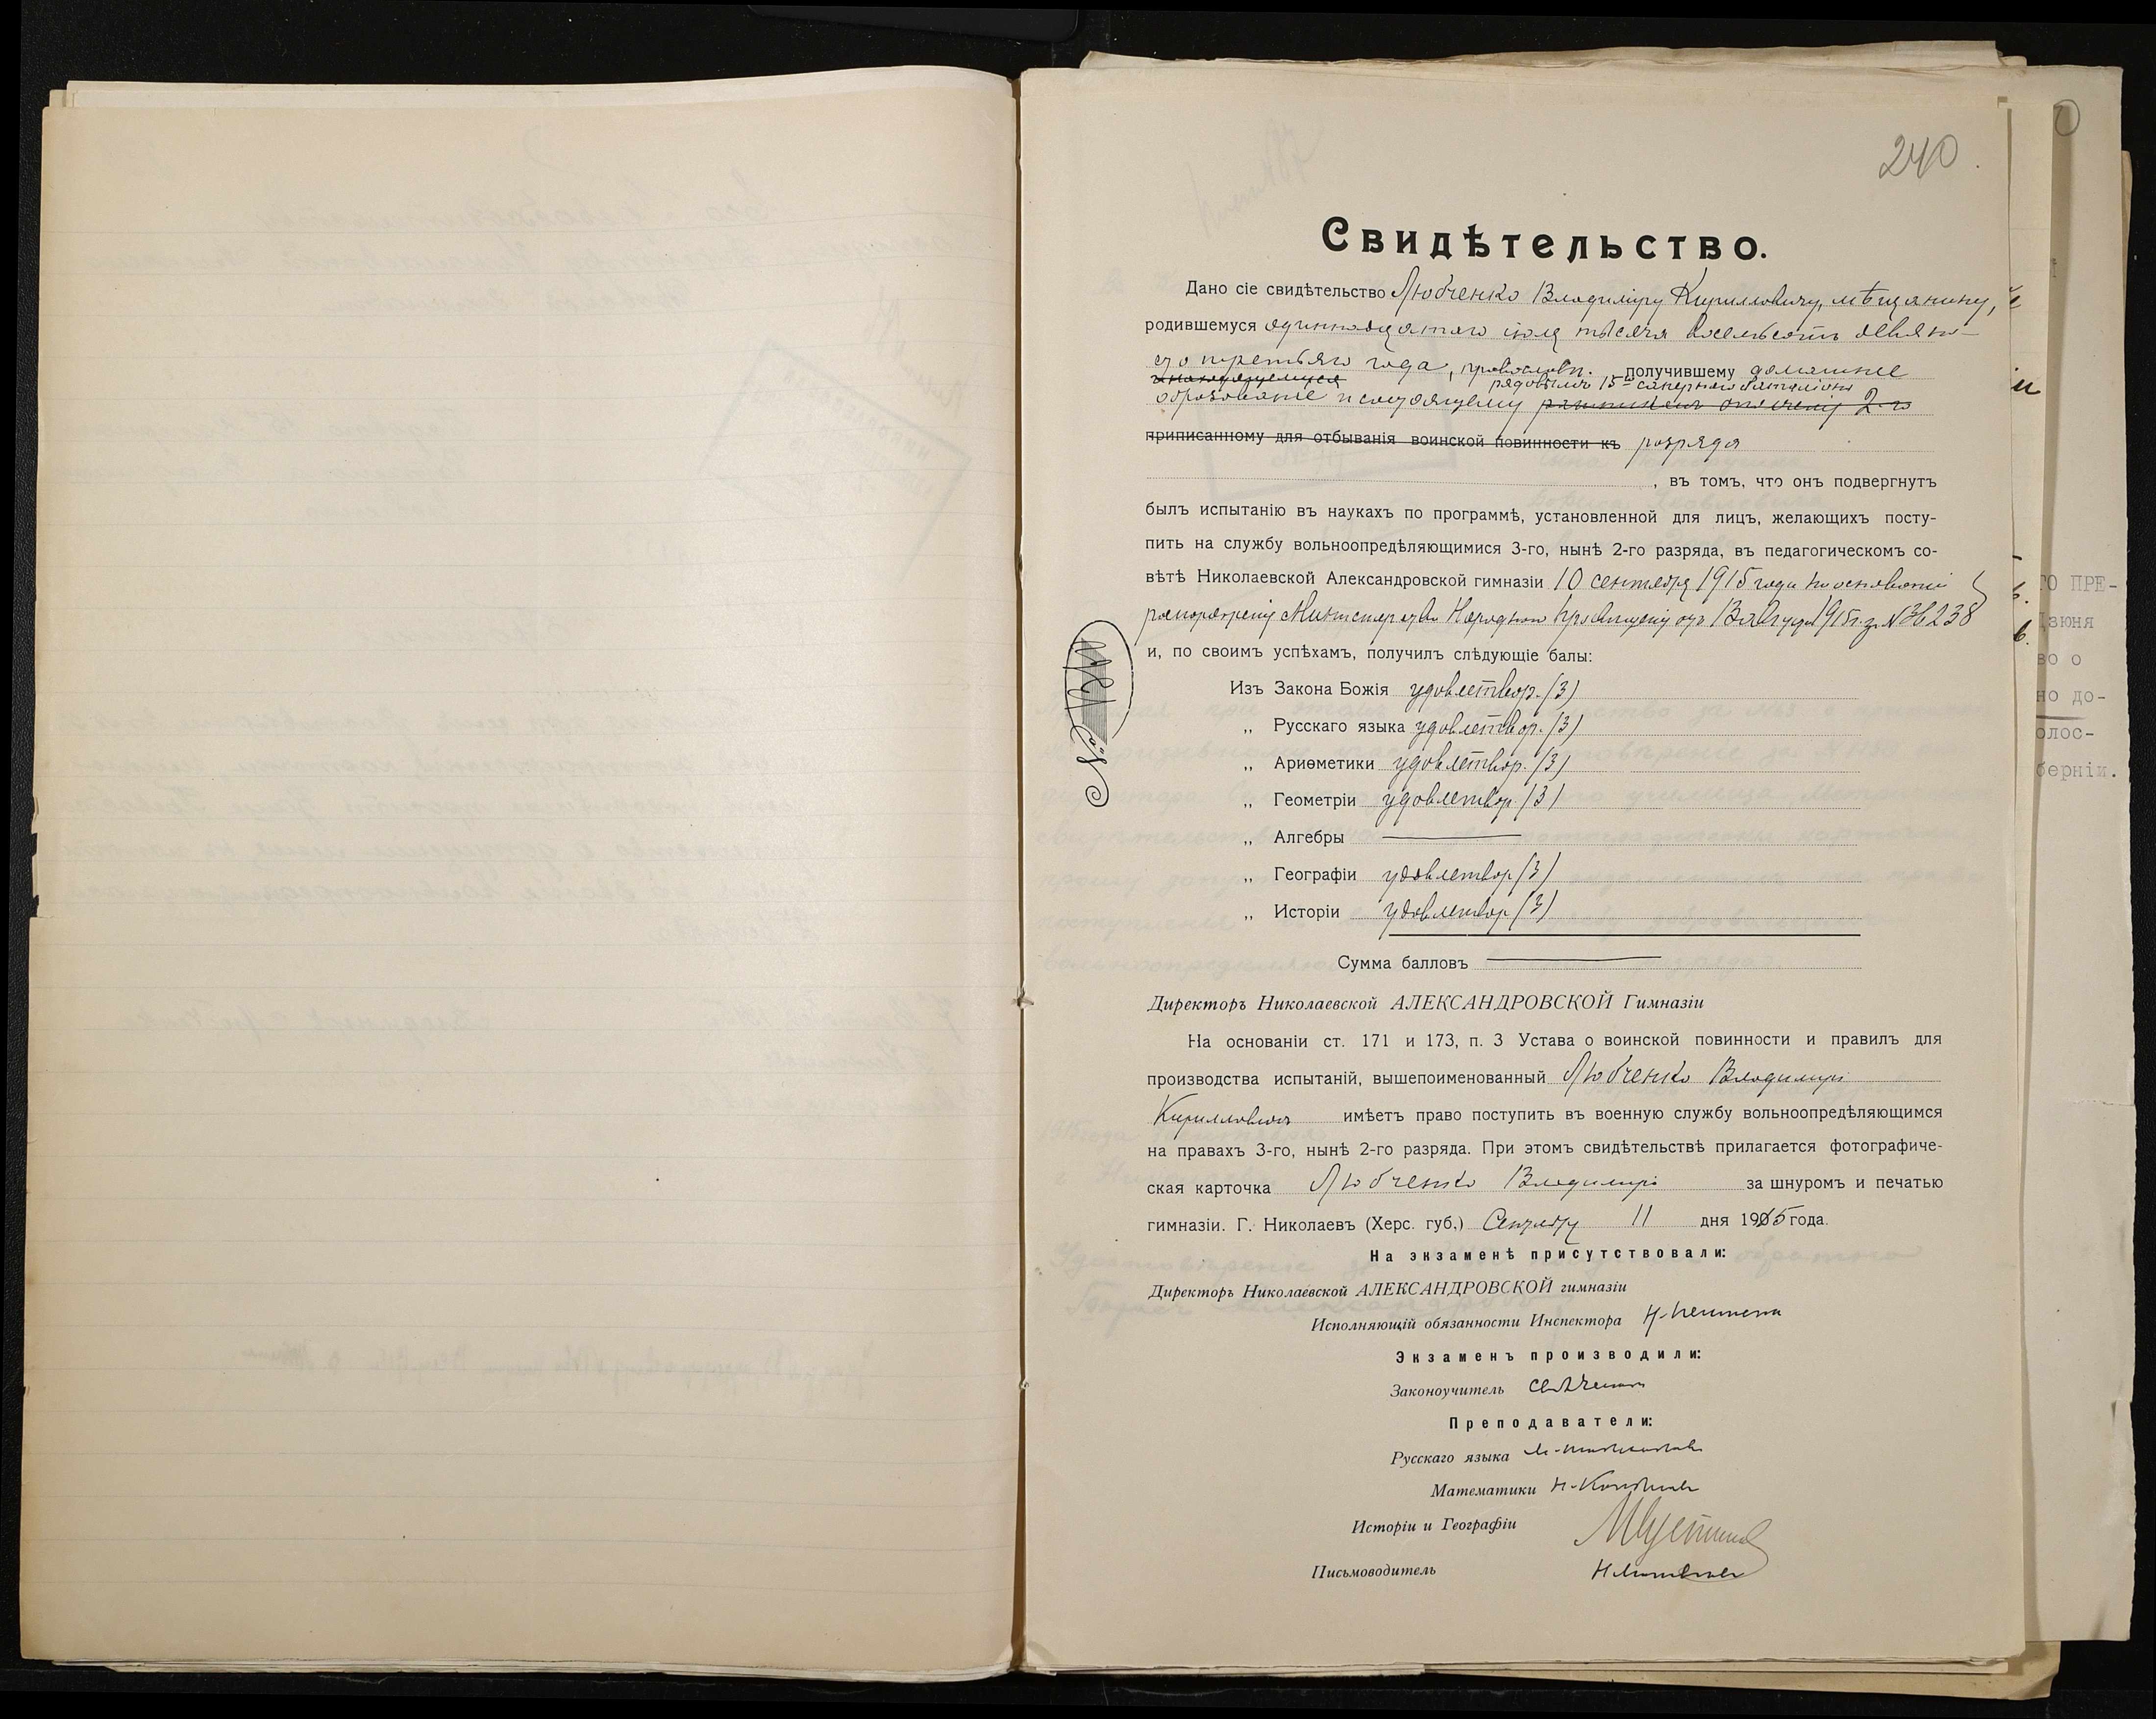 240
Свидѣтельство.
Дано сіе свидѣтельство Любченко Владиміру Кирилловичу, мѣщанину,
родившемуся одиннадцатаго іюля тысяча восемьсотъ девяно-
сто третьяго года, православн. получившему домашнее
рядовымъ 15го сапернаго баталіона
образованіе и состоящему ратникомъ ополченія 2-го
приписанному для отбыванія воинской повинности къ разряда
, въ томъ, что онъ подвергнутъ
былъ испытанію въ наукахъ по программѣ, установленной для лицъ, желающихъ посту-
пить на службу вольноопредѣляющимися 3-го, нынѣ 2-го разряда, въ педагогическомъ со-
вѣтѣ Николаевской Александровской гимназіи 10 сентября 1915 года на основаніи
распоряженія Министерства Народнаго Просвѣщенія отъ 13 Августа 1915 г. за № 36238
и, по своимъ успѣхамъ, получилъ слѣдующіе балы:
Изъ Закона Божія удовлетвор. (3)
„ Русскаго языка удовлетвор. (3)
„ Ариѳметики удовлетвор. (3)
„ Геометріи удовлетвор. (3)
„ Алгебры
„ Географіи удовлетвор (3)
„ Исторіи удовлетвор (3)
Сумма балловъ
Директоръ Николаевской АЛЕКСАНДРОВСКОЙ Гимназіи
На основаніи ст. 171 и 173, п. 3 Устава о воинской повинности и правилъ для
производства испытаній, вышепоименованный Любченко Владиміръ
Кирилловичъ имѣетъ право поступить въ военную службу вольноопредѣляющимся
на правахъ 3-го, нынѣ 2-го разряда. При этомъ свидѣтельствѣ прилагается фотографиче-
ская карточка Любченко Владиміръ за шнуромъ и печатью
гимназіи. Г. Николаевъ (Херс. губ.) Сентября 11 дня 1915 года.
На экзаменѣ присутствовали:
Директоръ Николаевской АЛЕКСАНДРОВСКОЙ гимназіи
Исполняющій обязанности Инспектора
Экзаменъ производили:
Законоучитель
Преподаватели:
Русскаго языка
Математики
Исторіи и Географіи
Письмоводитель
№
ГО ПРЕ-
во о
но до-
олос-
берніи.